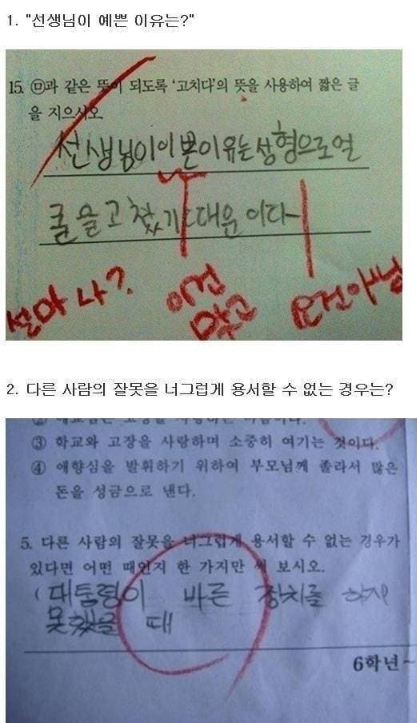 1. "선생님이 예쁜 이유는?"
15. ㉤과 같은 뜻이 되도록 '고치다'의 뜻을 사용하여 짧은 글
을 지으시오
선생님이 이쁜이유는 성형으로 얼
굴을 고쳤기 때문 이다
설마 나?
이건
맞고
요건 아님
2. 다른 사람의 잘못을 너그럽게 용서할 수 없는 경우는?
③ 학교와 고장을 사랑하며 소중히 여기는 것이다.
④ 애향심을 발휘하기 위하여 부모님께 졸라서 많은
돈을 성금으로 낸다.
5. 다른 사람의 잘못을 너그럽게 용서할 수 없는 경우가
있다면 어떤 때인지 한 가지만 써 보시오.
( 대통령이 바른 정치를 하지
못했을 때
6학년~